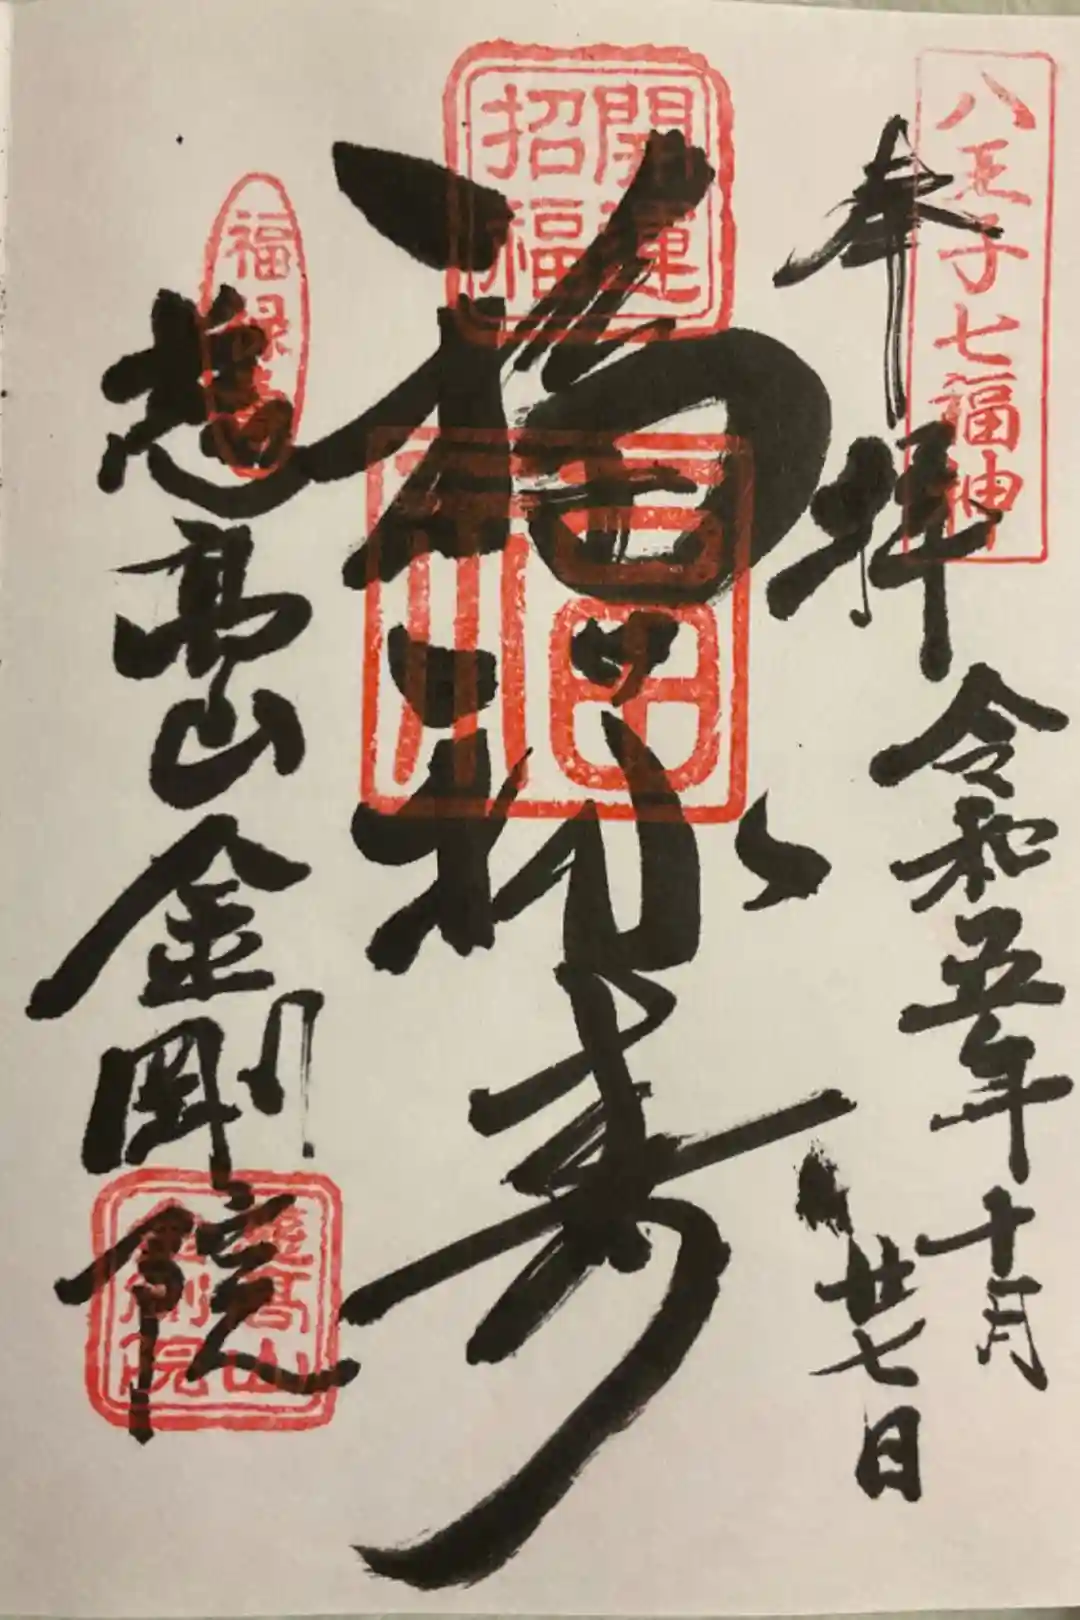 八王子七福神
奉拝
令和五年十月
廿七日
開運
招福
福
福禄寿
福禄寿
慈高山金剛院
慈高山
金剛院